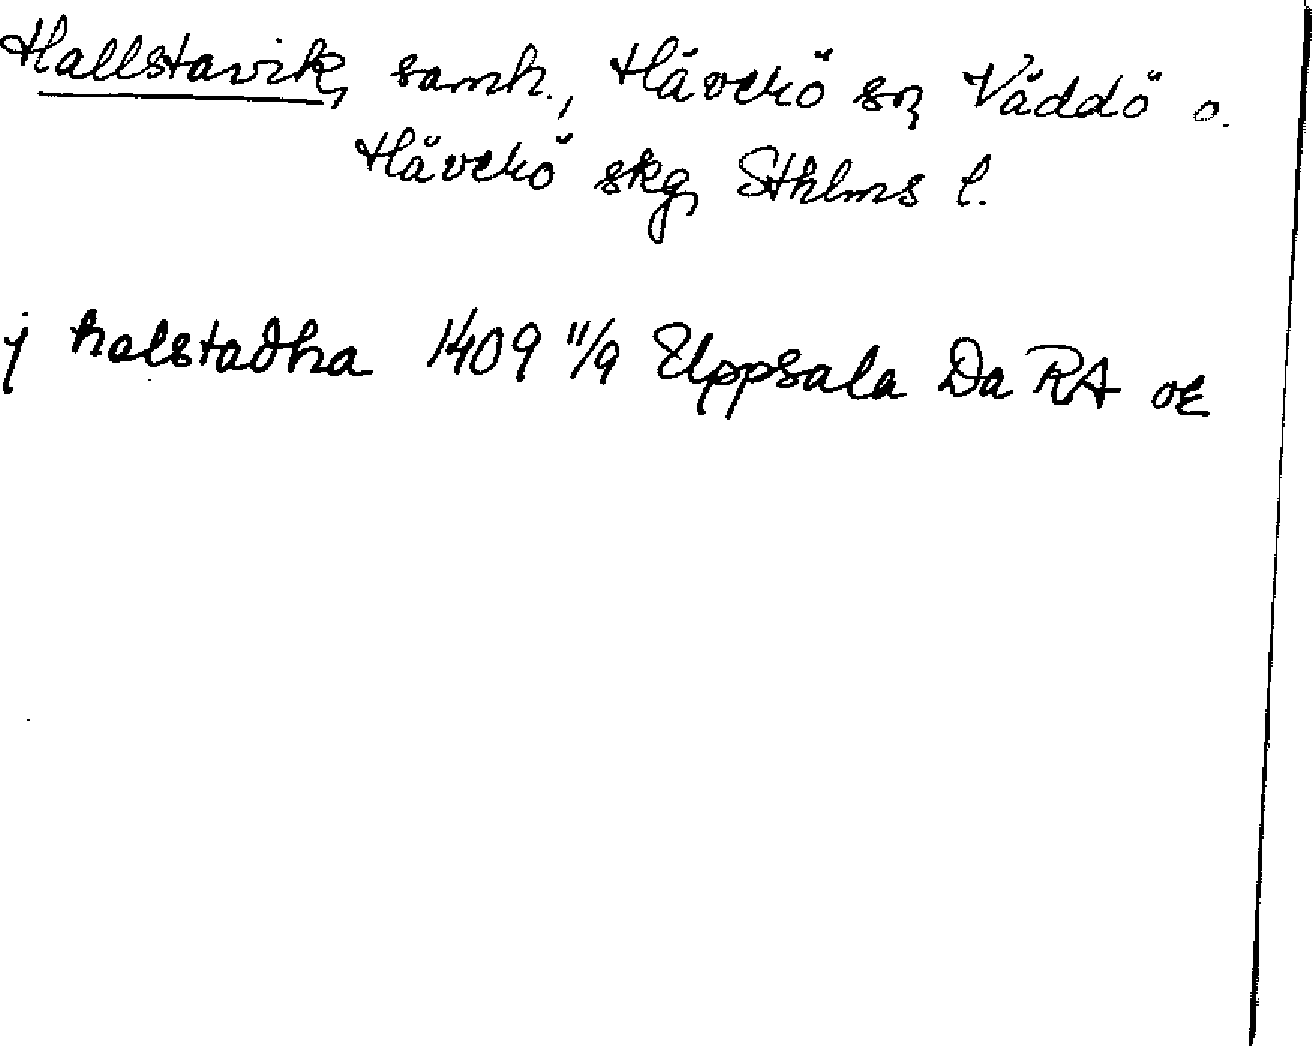 Hallstavik, samh., Häverö sn, Väddö o.
Häverö skg, Sthlms l.
j halstadha 1409 11/9 Uppsala Da RA or